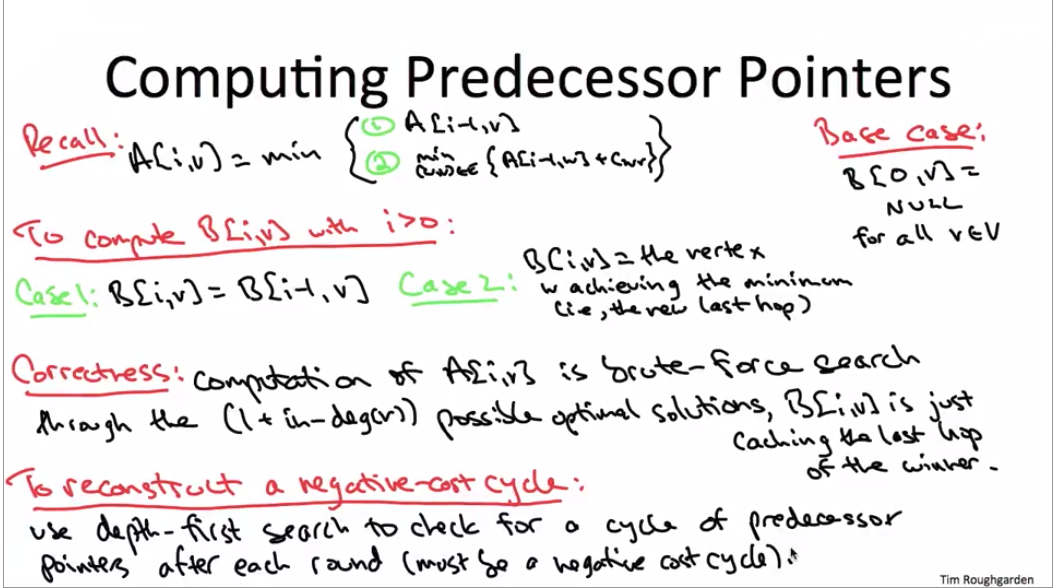 Computing Predecessor Pointers
Recall: A[i,v] = min { ① A[i-1,v]
② min (w,v)∈E {A[i-1,w] + Cwv} }
Base case:
B[0,v] =
NULL
for all v∈V
To compute B[i,v] with i>0:
Case 1: B[i,v] = B[i-1,v]
Case 2: B[i,v] = the vertex
w achieving the minimum
(i.e., the new last hop)
Correctness: computation of A[i,v] is brute-force search
through the (1+in-deg(v)) possible optimal solutions, B[i,v] is just
caching the last hop
of the winner.
To reconstruct a negative-cost cycle:
use depth-first search to check for a cycle of predecessor
pointers after each round (must be a negative cost cycle).
Tim Roughgarden